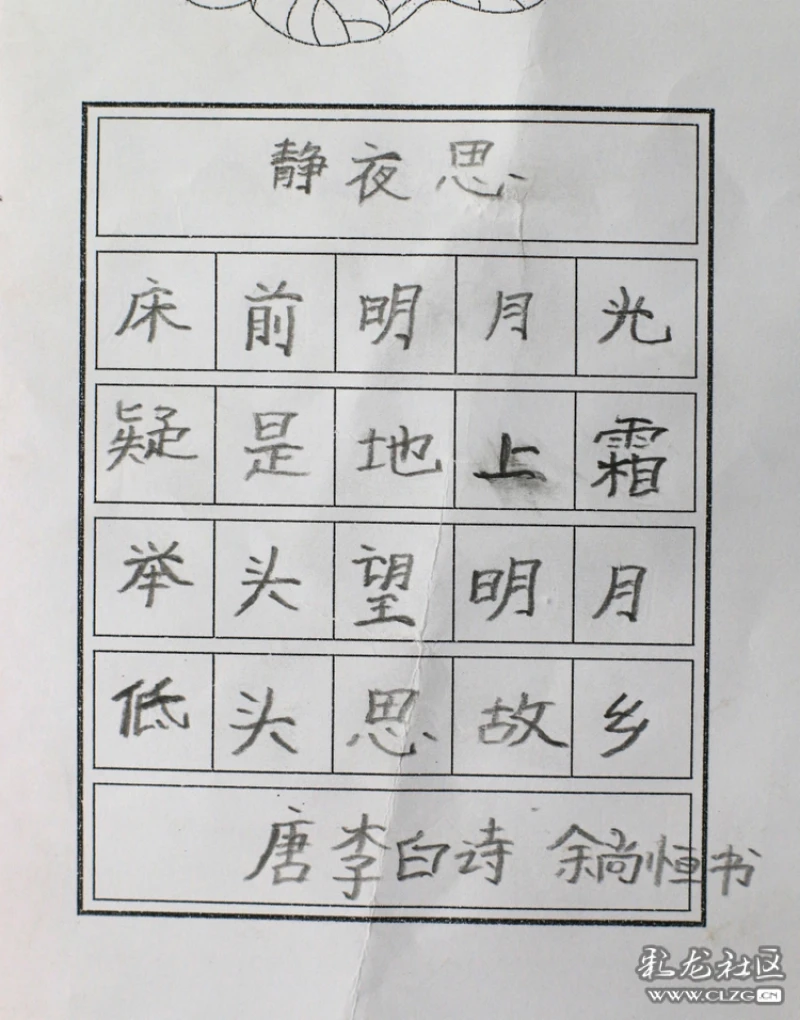 静夜思
床前明月光
疑是地上霜
举头望明月
低头思故乡
唐李白诗 余尚恒书
彩龙社区
WWW.CLZG.CN